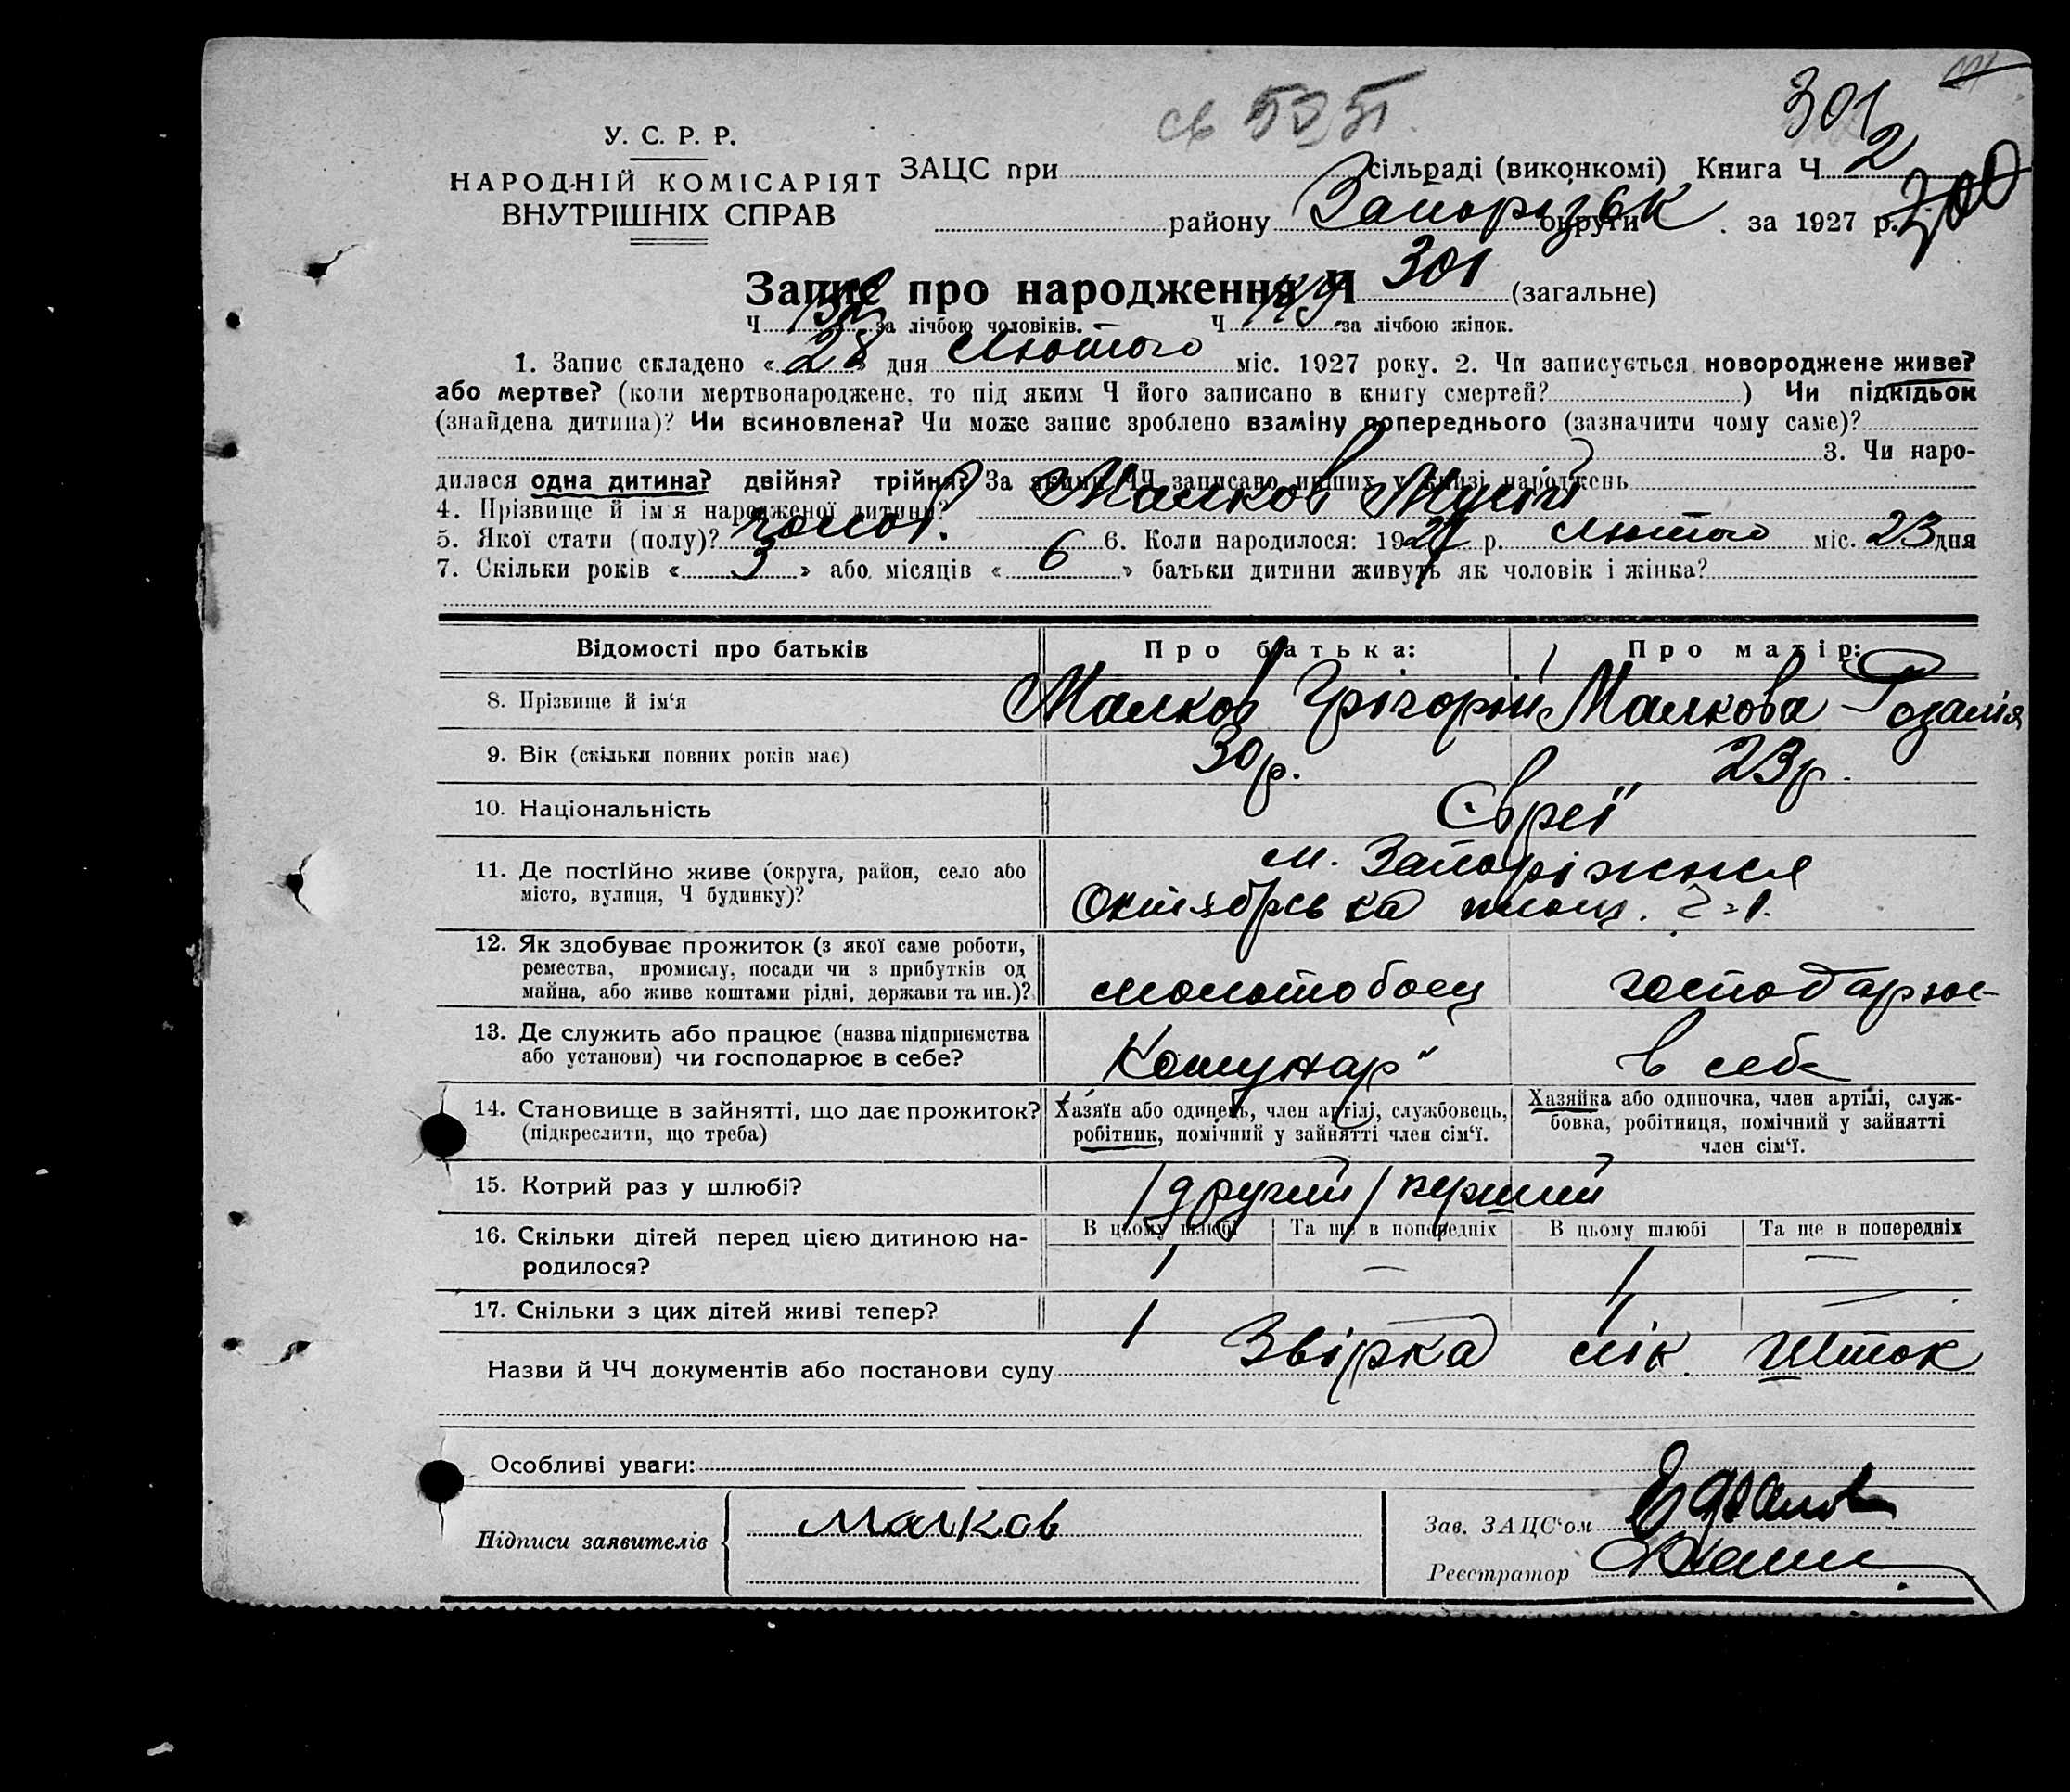 301
У. С. Р. Р.
НАРОДНІЙ КОМІСАРІЯТ
ВНУТРІШНІХ СПРАВ
ЗАЦС при сільраді (виконкомі) Книга Ч 2
району Запорізьк округи за 1927 р. 300
Запис про народження Ч 301 (загальне)
Ч за лічбою чоловіків. Ч за лічбою жінок.
1. Запис складено « 28 » дня Лютого міс. 1927 року. 2. Чи записується новороджене живе?
або мертве? (коли мертвонароджене, то під яким Ч його записано в книгу смертей? ) Чи підкідьок
(знайдена дитина)? Чи всиновлена? Чи може запис зроблено взаміну попереднього (зазначити чому саме)?
3. Чи наро-
дилася одна дитина? двійня? трійня? За якими ЧЧ записано инших у книзі народжень
4. Прізвище й ім'я народженої дитини? Малков
5. Якої стати (полу)? чолов. 6. Коли народилося: 1927 р. Лютого міс. 23 дня
7. Скільки років « 3 » або місяців « 6 » батьки дитини живуть як чоловік і жінка?
Відомості про батьків Про батька: Про матір:
8. Прізвище й ім'я Малков Грігорій Малкова Розалія
9. Вік (скільки повних років має) 30 р. 23 р.
10. Національність Євреї
11. Де постійно живе (округа, район, село або м. Запоріжжя
місто, вулиця, Ч будинку)? Октябрська площ. Ч 1.
12. Як здобуває прожиток (з якої саме роботи,
ремества, промислу, посади чи з прибутків од
майна, або живе коштами рідні, держави та ин.)? молотобоец господарює
13. Де служить або працює (назва підприємства
або установи) чи господарює в себе? Комунар" в себе
14. Становище в зайнятті, що дає прожиток? Хазяїн або одинець, член артілі, службовець, Хазяйка або одиночка, член артілі, служ-
(підкреслити, що треба) робітник, помічний у зайнятті член сім'ї. бовка, робітниця, помічний у зайнятті
член сім'ї.
15. Котрий раз у шлюбі? другий / перший
16. Скільки дітей перед цією дитиною на- В цьому шлюбі Та ще в попередніх В цьому шлюбі Та ще в попередніх
родилося? 1 — 1 —
17. Скільки з цих дітей живі тепер? 1 — 1 —
Назви й ЧЧ документів або постанови суду Звірка лік. Шток
Особливі уваги:
Підписи заявителів Малков
Зав. ЗАЦС'ом
Реєстратор